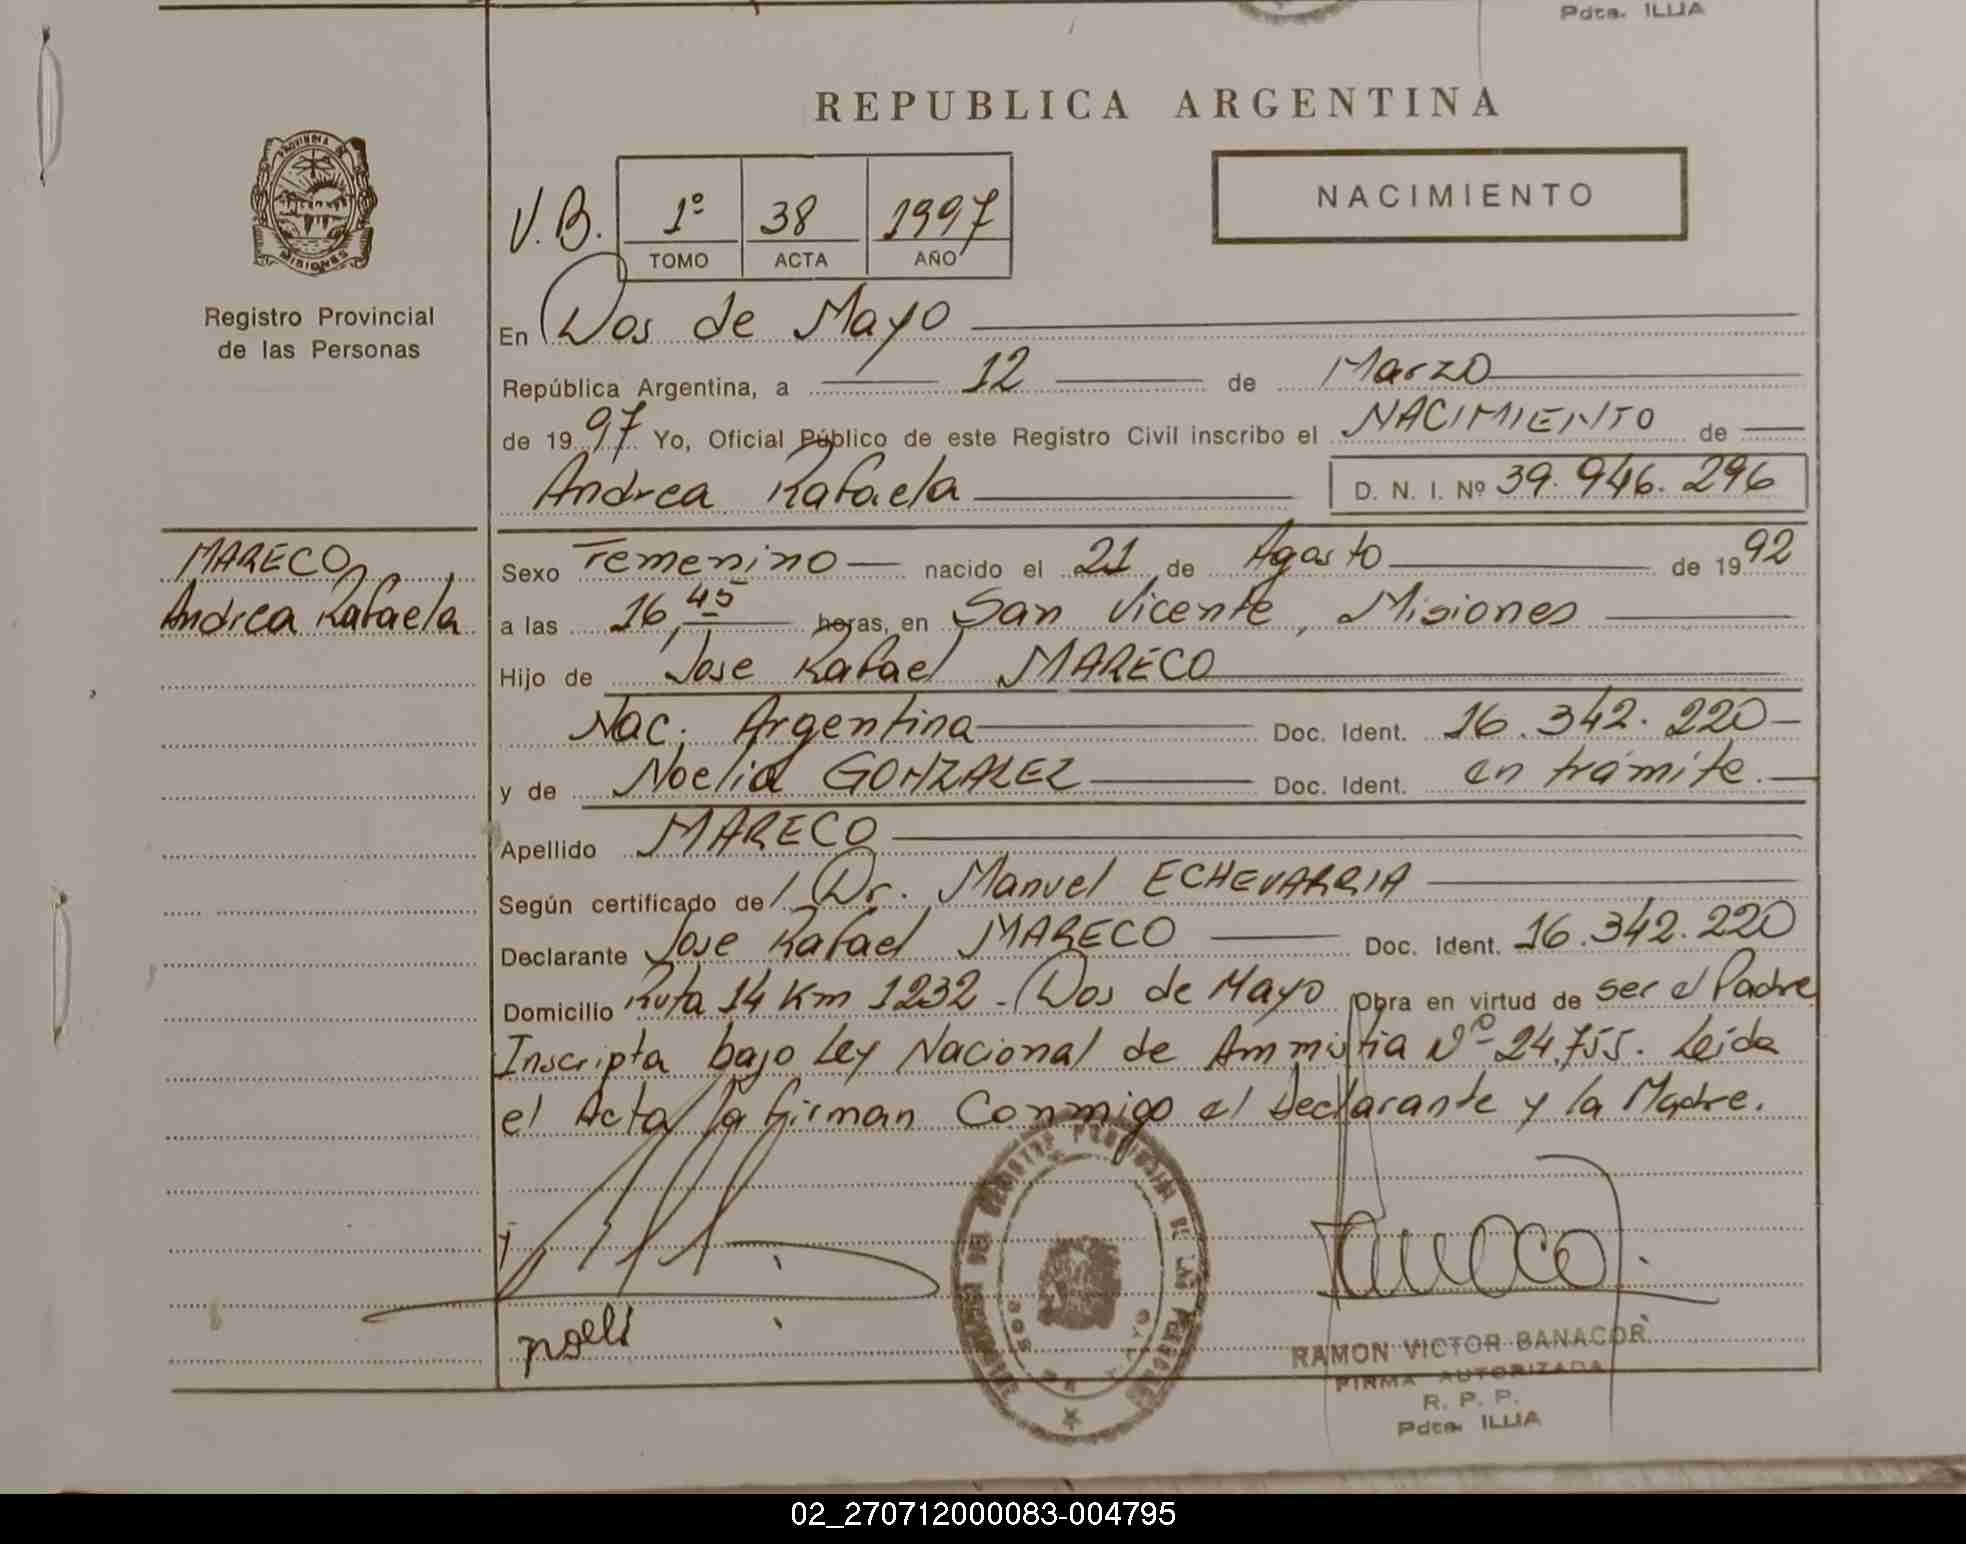 Pdte. ILLIA
REPUBLICA ARGENTINA
PROVINCIA DE
MISIONES
Registro Provincial
de las Personas
NACIMIENTO
V.B. 1º 38 1997
TOMO ACTA AÑO
En Dos de Mayo
República Argentina, a 12 de Marzo
de 1997 Yo, Oficial Público de este Registro Civil inscribo el NACIMIENTO de
Andrea Rafaela D. N. I. Nº 39.946.296
MARECO
Andrea Rafaela
Sexo Femenino nacido el 21 de Agosto de 1992
a las 16,45 horas, en San Vicente, Misiones
Hijo de Jose Rafael MARECO
Nac. Argentina Doc. Ident. 16.342.220
y de Noelia GONZALEZ Doc. Ident. en trámite.
Apellido MARECO
Según certificado de Dr. Manuel ECHEVARRIA
Declarante Jose Rafael MARECO Doc. Ident. 16.342.220
Domicilio Ruta 14 Km 1232 - Dos de Mayo Obra en virtud de ser el Padre
Inscripta bajo Ley Nacional de Ammistia Nº 24.755. Leida
el Acta la firman Conmigo el Declarante y la Madre.
DEL REGISTRO PROVINCIAL DE LAS PERSONAS
DOS DE MAYO
RAMON VICTOR BANACOR
FIRMA AUTORIZADA
R. P. P.
Pdte. ILLIA
02_270712000083-004795